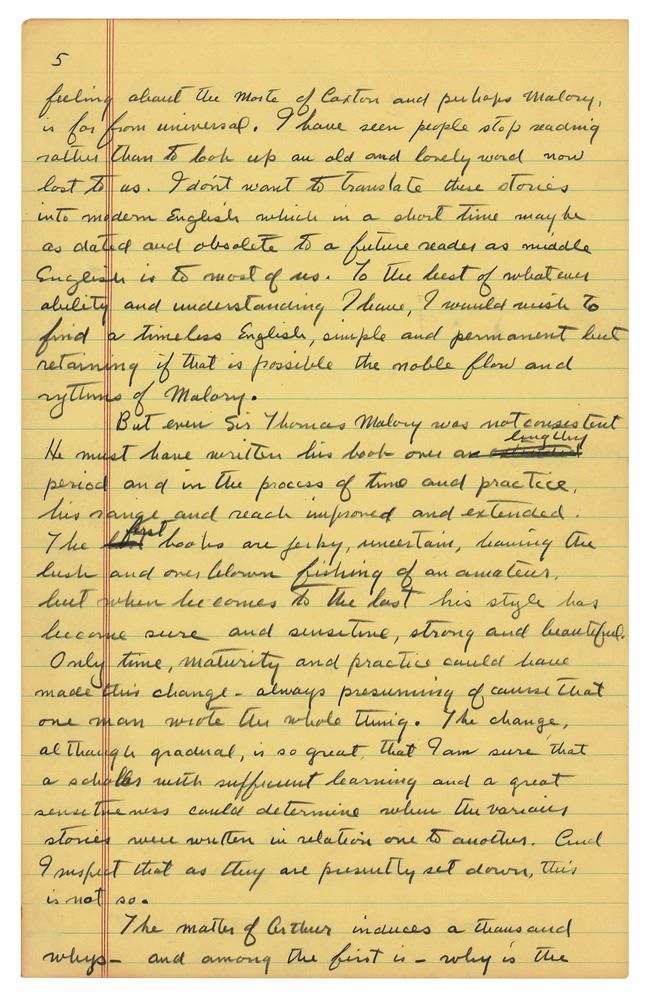 5
feeling about the Morte of Caxton and perhaps Malory,
is far from universal. I have seen people stop reading
rather than to look up an old and lovely word now
lost to us. I dont want to translate these stories
into modern English which in a short time may be
as dated and obsolete to a future reader as middle
English is to most of us. To the best of whatever
ability and understanding I have, I would wish to
find a timeless English, simple and permanent but
retaining if that is possible the noble flow and
rythms of Malory.
But even Sir Thomas Malory was not consistent
lengthy
He must have written his book over a
period and in the process of time and practice,
his range and reach improved and extended.
first
The books are jerky, uncertain, having the
lush and over blown fishing of an amateur,
but when he comes to the last his style has
become sure and sensitive, strong and beautiful.
Only time, maturity and practice could have
made this change - always presuming of course that
one man wrote the whole thing. The change,
although gradual, is so great that I am sure that
a scholar with sufficient learning and a great
sensitiveness could determine when the various
stories were written in relation one to another. And
I suspect that as they are presently set down, this
is not so.
The matter of Arthur induces a thousand
whys - and among the first is - why is the